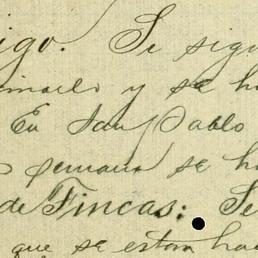 igo. Se sigu
inarlo y se ha
En San Pablo
semana se ha
de Fincas: Se
que se estan hac